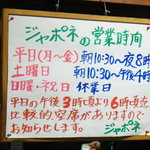 ジャポネの営業時間
平日(月〜金) 朝10:30〜夜8時
土曜日 朝10:30〜午後4時
日曜・祝日 休業日
平日の午後3時頃より6時頃迄
比較的、空席がありますので
お知らせします。 ジャポネ